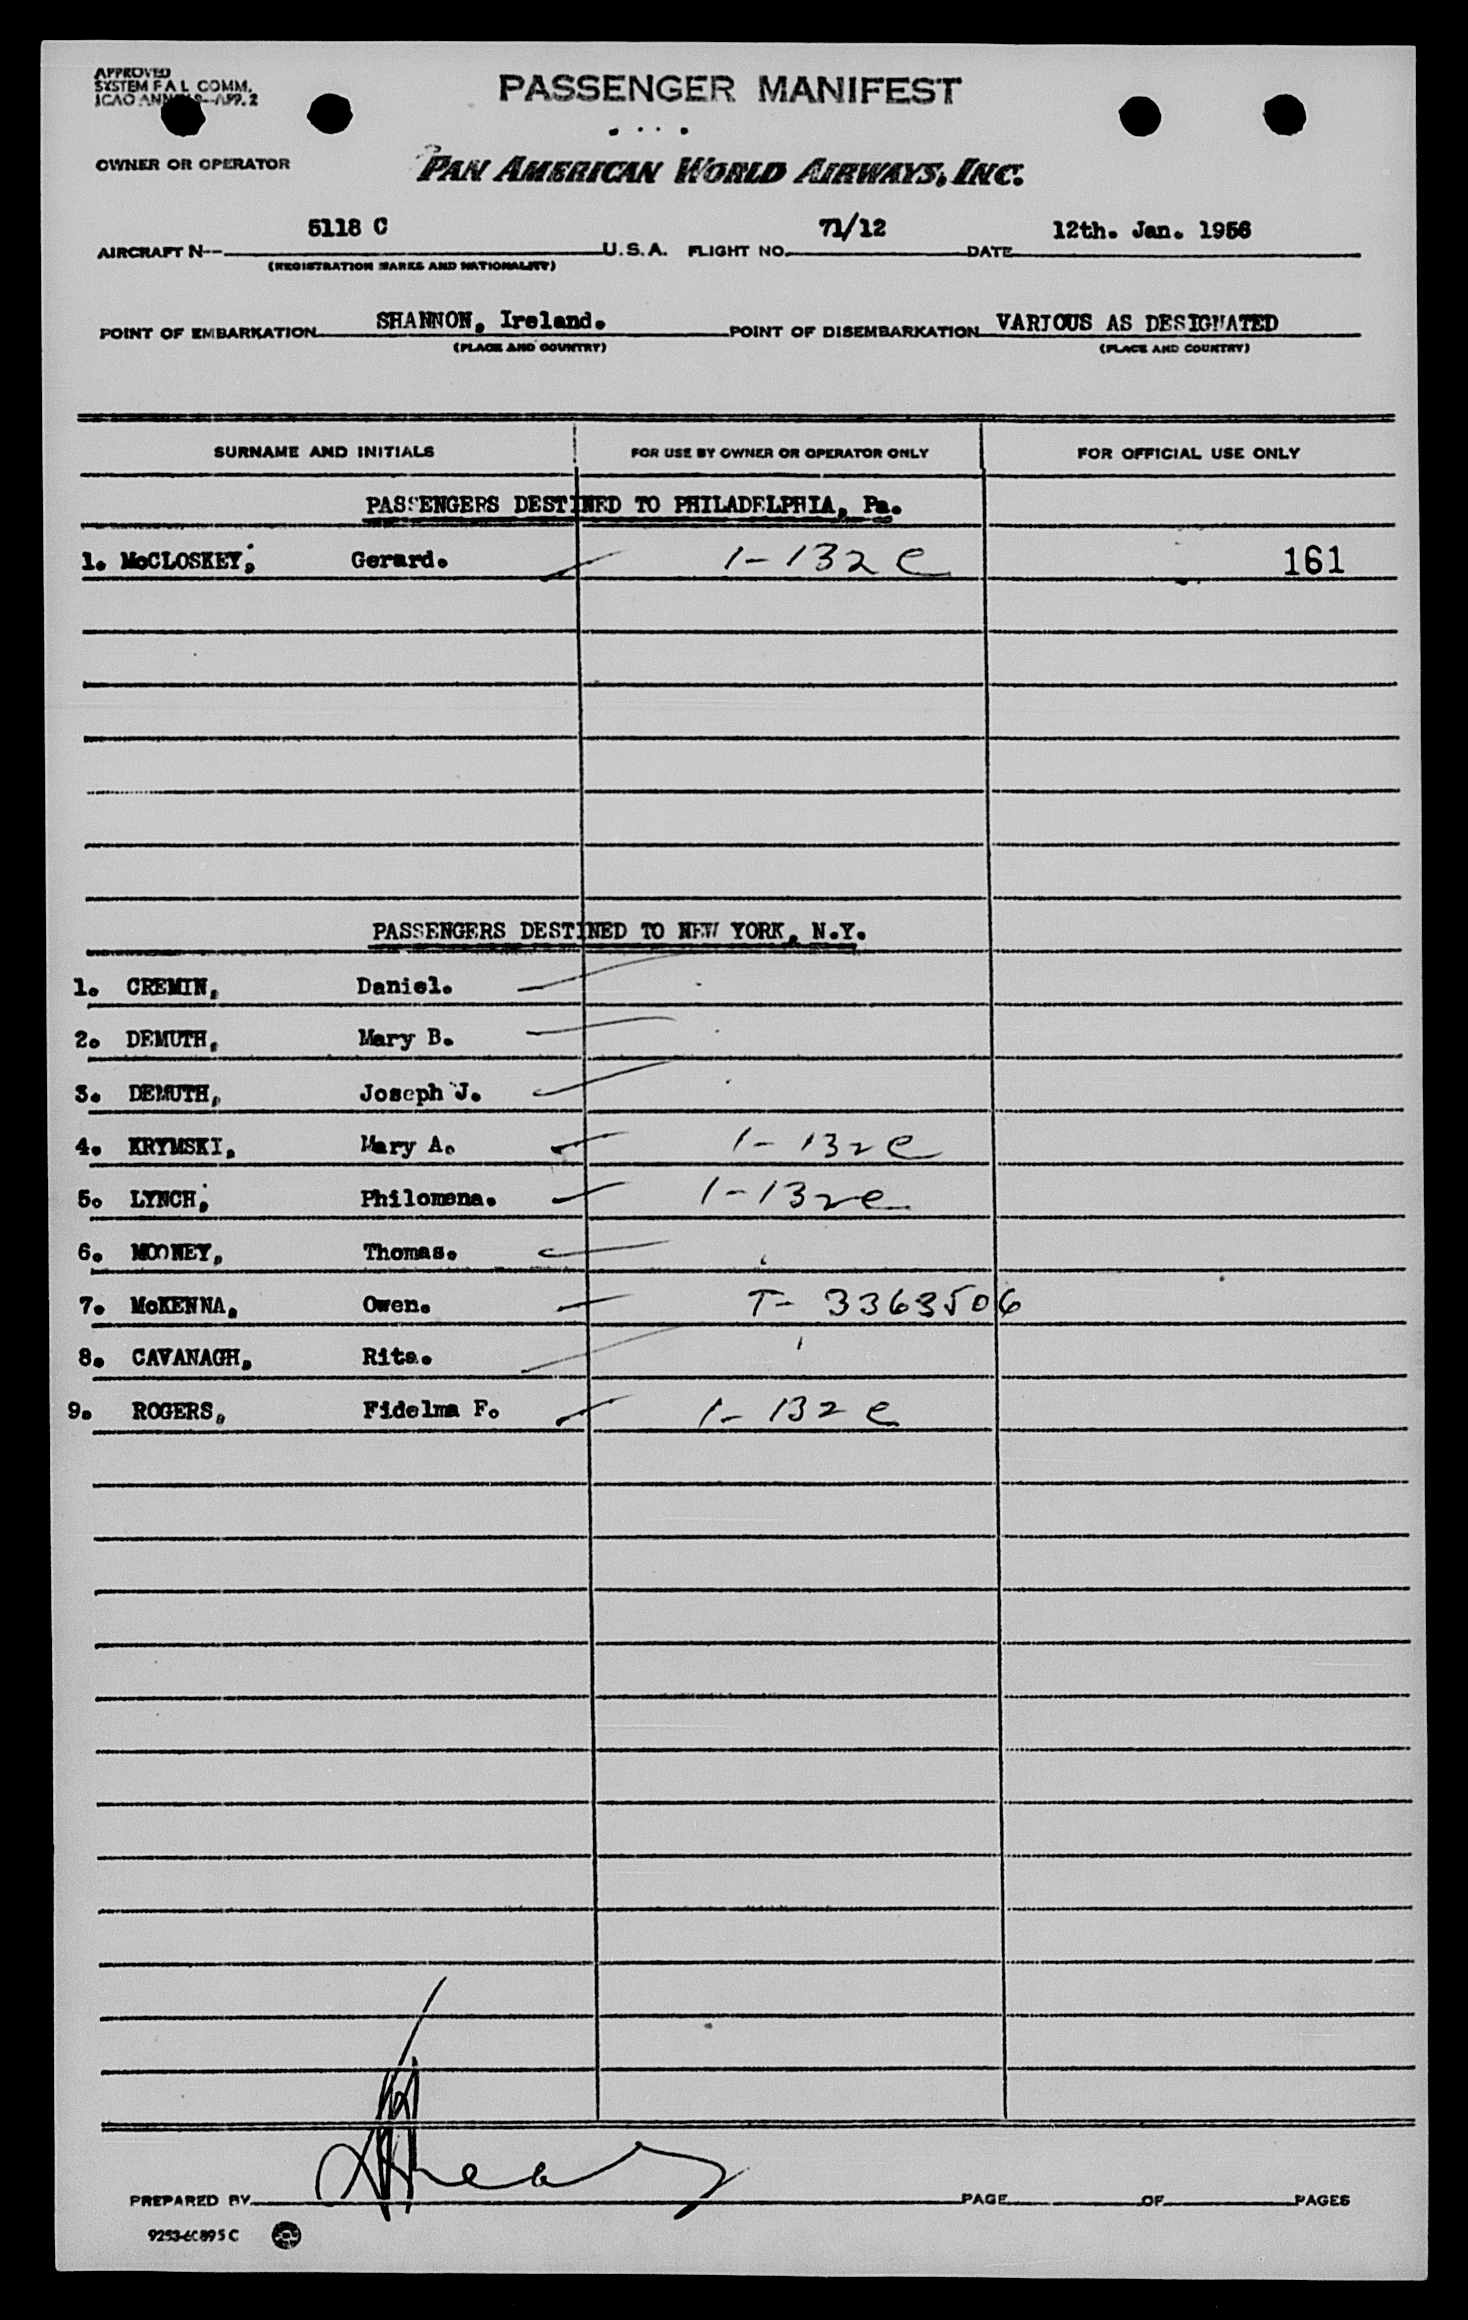 APPROVED
SYSTEM F A L COMM.
ICAO ANNEX 9—APP. 2
PASSENGER MANIFEST
OWNER OR OPERATOR PAN AMERICAN WORLD AIRWAYS, INC.
AIRCRAFT N-- 5118 C U.S.A. FLIGHT NO. 71/12 DATE 12th. Jan. 1956
(REGISTRATION MARKS AND NATIONALITY)
POINT OF EMBARKATION SHANNON, Ireland. POINT OF DISEMBARKATION VARIOUS AS DESIGNATED
(PLACE AND COUNTRY) (PLACE AND COUNTRY)
SURNAME AND INITIALS FOR USE BY OWNER OR OPERATOR ONLY FOR OFFICIAL USE ONLY
PASSENGERS DESTINED TO PHILADELPHIA, Pa.
1. McCLOSKEY, Gerard. 1-132 e 161
PASSENGERS DESTINED TO NEW YORK, N.Y.
1. CREMIN, Daniel.
2. DEMUTH, Mary B.
3. DEMUTH, Joseph J.
4. KRYMSKI, Mary A. 1-132 e
5. LYNCH, Philomena. 1-132 e
6. MOONEY, Thomas.
7. McKENNA, Owen. T- 3363506
8. CAVANAGH, Rita.
9. ROGERS, Fidelma F. 1-132 e
PREPARED BY PAGE OF PAGES
9253-6C895 C